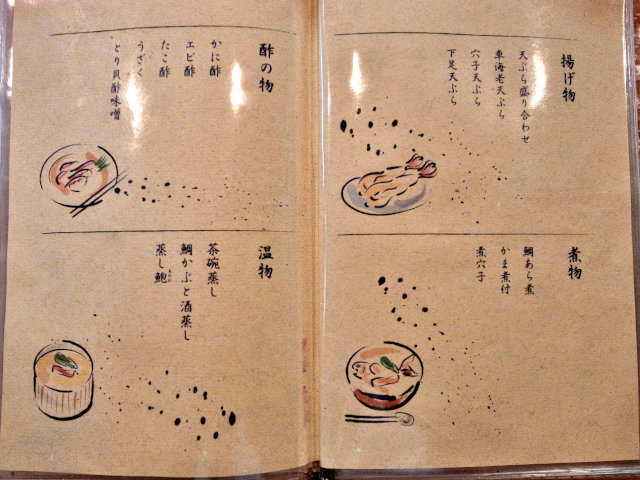 揚げ物
天ぷら盛り合わせ
車海老天ぷら
穴子天ぷら
下足天ぷら
煮物
鯛あら煮
かま煮付
煮穴子
酢の物
かに酢
エビ酢
たこ酢
うざく
とり貝酢味噌
温物
茶碗蒸し
鯛かぶと酒蒸し
蒸し鮑
あわび